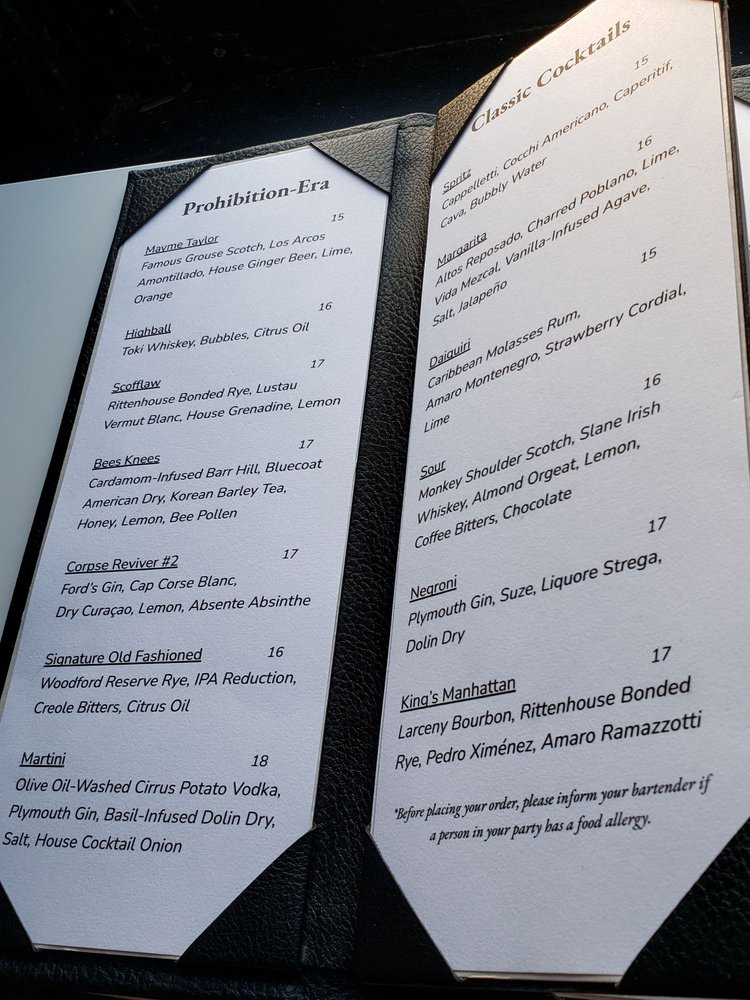 Prohibition-Era
15
Mayme Taylor
Famous Grouse Scotch, Los Arcos
Amontillado, House Ginger Beer, Lime,
Orange
16
Highball
Toki Whiskey, Bubbles, Citrus Oil
17
Scofflaw
Rittenhouse Bonded Rye, Lustau
Vermut Blanc, House Grenadine, Lemon
17
Bees Knees
Cardamom-Infused Barr Hill, Bluecoat
American Dry, Korean Barley Tea,
Honey, Lemon, Bee Pollen
Corpse Reviver #2 17
Ford's Gin, Cap Corse Blanc,
Dry Curaçao, Lemon, Absente Absinthe
Signature Old Fashioned 16
Woodford Reserve Rye, IPA Reduction,
Creole Bitters, Citrus Oil
Martini 18
Olive Oil-Washed Cirrus Potato Vodka,
Plymouth Gin, Basil-Infused Dolin Dry,
Salt, House Cocktail Onion
Classic Cocktails
15
Spritz
Cappelletti, Cocchi Americano, Caperitif,
Cava, Bubbly Water
16
Margarita
Altos Reposado, Charred Poblano, Lime,
Vida Mezcal, Vanilla-Infused Agave,
Salt, Jalapeño
15
Daiquiri
Caribbean Molasses Rum,
Amaro Montenegro, Strawberry Cordial,
Lime
16
Sour
Monkey Shoulder Scotch, Slane Irish
Whiskey, Almond Orgeat, Lemon,
Coffee Bitters, Chocolate
17
Negroni
Plymouth Gin, Suze, Liquore Strega,
Dolin Dry
17
King's Manhattan
Larceny Bourbon, Rittenhouse Bonded
Rye, Pedro Ximénez, Amaro Ramazzotti
*Before placing your order, please inform your bartender if
a person in your party has a food allergy.